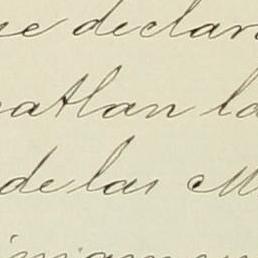 se declar
atlan la
de las M